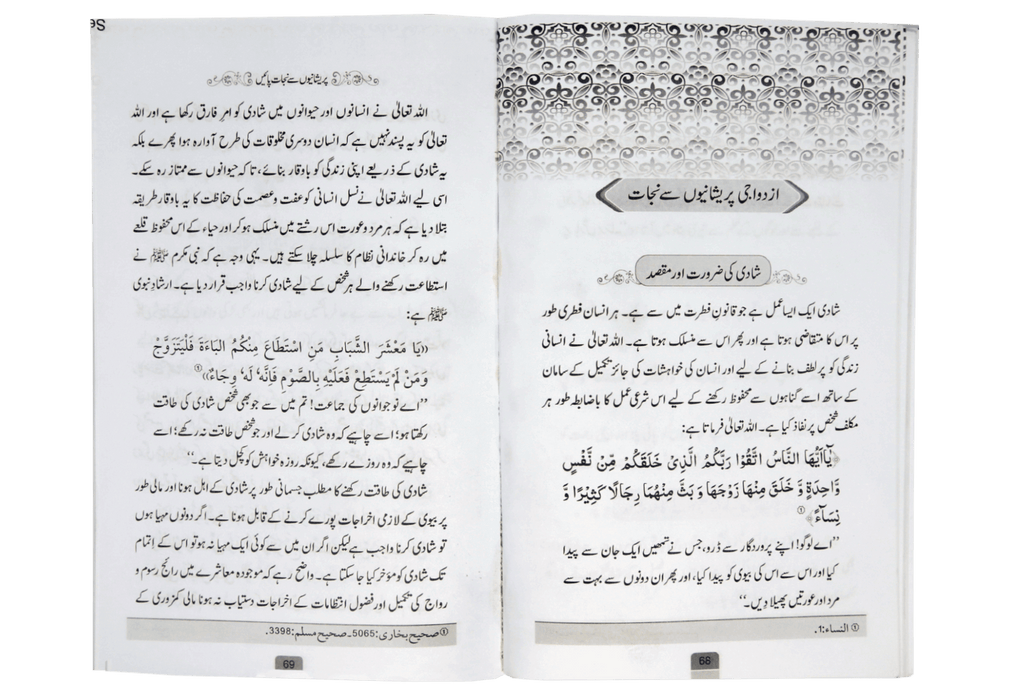 ازدواجی پریشانیوں سے نجات
شادی کی ضرورت اور مقصد
شادی ایک ایسا عمل ہے جو قانونِ فطرت میں سے ہے۔ ہر انسان فطری طور
پر اس کا متقاضی ہوتا ہے اور پھر اس سے منسلک ہوتا ہے۔ اللہ تعالیٰ نے انسانی
زندگی کو پر لطف بنانے کے لیے اور انسان کی خواہشات کی جائز تکمیل کے سامان
کے ساتھ اسے گناہوں سے محفوظ رکھنے کے لیے اس شرعی عمل کا باضابطہ طور ہر
مکلف شخص پر نفاذ کیا ہے۔ اللہ تعالیٰ فرماتا ہے:
﴿يٰٓاَيُّهَا النَّاسُ اتَّقُوْا رَبَّكُمُ الَّذِيْ خَلَقَكُمْ مِّنْ نَّفْسٍ
وَّاحِدَةٍ وَّ خَلَقَ مِنْهَا زَوْجَهَا وَ بَثَّ مِنْهُمَا رِجَالًا كَثِيْرًا وَّ
نِسَآءً﴾①
’’اے لوگو! اپنے پروردگار سے ڈرو، جس نے تمھیں ایک جان سے پیدا
کیا اور اس سے اس کی بیوی کو پیدا کیا، اور پھر ان دونوں سے بہت سے
مرد اور عورتیں پھیلا دِیں۔‘‘
① النساء:1.
66
پریشانیوں سے نجات پائیں
اللہ تعالیٰ نے انسانوں اور حیوانوں میں شادی کو امرِ فارق رکھا ہے اور اللہ
تعالیٰ کو یہ پسند نہیں ہے کہ انسان دوسری مخلوقات کی طرح آوارہ ہوا پھرے بلکہ
یہ شادی کے ذریعے اپنی زندگی کو باوقار بنائے، تاکہ حیوانوں سے ممتاز رہ سکے۔
اسی لیے اللہ تعالیٰ نے نسلِ انسانی کو عفت و عصمت کی حفاظت کا یہ باوقار طریقہ
بتلا دیا ہے کہ ہر مرد و عورت اس رشتے میں منسلک ہو کر اور حیاء کے اس محفوظ قلعے
میں رہ کر خاندانی نظام کا سلسلہ چلا سکتے ہیں۔ یہی وجہ ہے کہ نبی مکرم ﷺ نے
استطاعت رکھنے والے ہر شخص کے لیے شادی کرنا واجب قرار دیا ہے۔ ارشادِ نبوی
ﷺ ہے:
«يَا مَعْشَرَ الشَّبَابِ مَنِ اسْتَطَاعَ مِنْكُمُ الْبَاءَةَ فَلْيَتَزَوَّجْ
وَمَنْ لَمْ يَسْتَطِعْ فَعَلَيْهِ بِالصَّوْمِ فَإِنَّهُ لَهُ وِجَاءٌ»①
’’اے نوجوانوں کی جماعت! تم میں سے جو بھی شخص شادی کی طاقت
رکھتا ہو؛ اسے چاہیے کہ وہ شادی کرلے اور جو شخص طاقت نہ رکھے؛ اسے
چاہیے کہ وہ روزے رکھے، کیونکہ روزہ خواہش کو کچل دیتا ہے۔‘‘
شادی کی طاقت رکھنے کا مطلب جسمانی طور پر شادی کے اہل ہونا اور مالی طور
پر بیوی کے لازمی اخراجات پورے کرنے کے قابل ہونا ہے۔ اگر دونوں مہیا ہوں
تو شادی کرنا واجب ہے لیکن اگر ان میں سے کوئی ایک مہیا نہ ہو تو اس کے اِتمام
تک شادی کو مؤخر کیا جا سکتا ہے۔ واضح رہے کہ موجودہ معاشرے میں رائج رسوم و
رواج کی تکمیل اور فضول انتظامات کے اخراجات دستیاب نہ ہونا مالی کمزوری کے
① صحیح بخاری:5065۔ صحیح مسلم:3398.
69